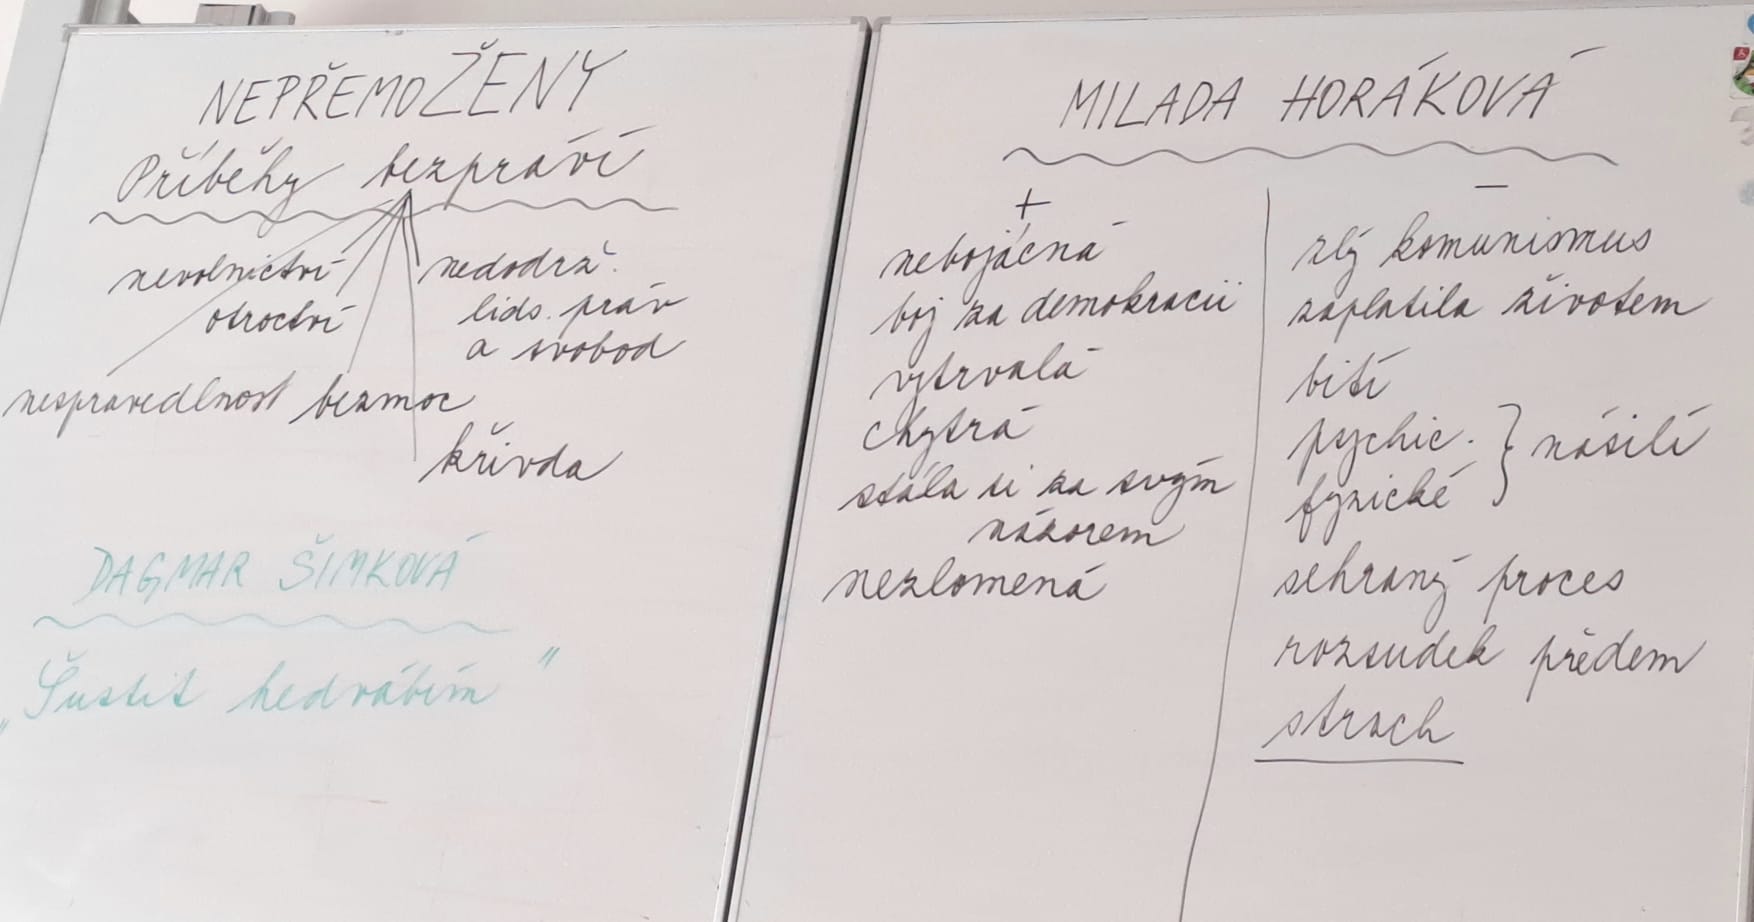 NEPŘEMOŽENY
Příběhy bezpráví
nevolnictví
otroctví
nedodrž.
lids. práv
a svobod
nespravedlnost bezmoc
křivda
DAGMAR ŠIMKOVÁ
„Šustit hedvábím"
MILADA HORÁKOVÁ
+
nebojácná
boj za demokracii
vytrvalá
chytrá
stála si za svým
názorem
nezlomená
–
zlý komunismus
zaplatila životem
bití
psychic.
fyzické
} násilí
sehraný proces
rozsudek předem
strach